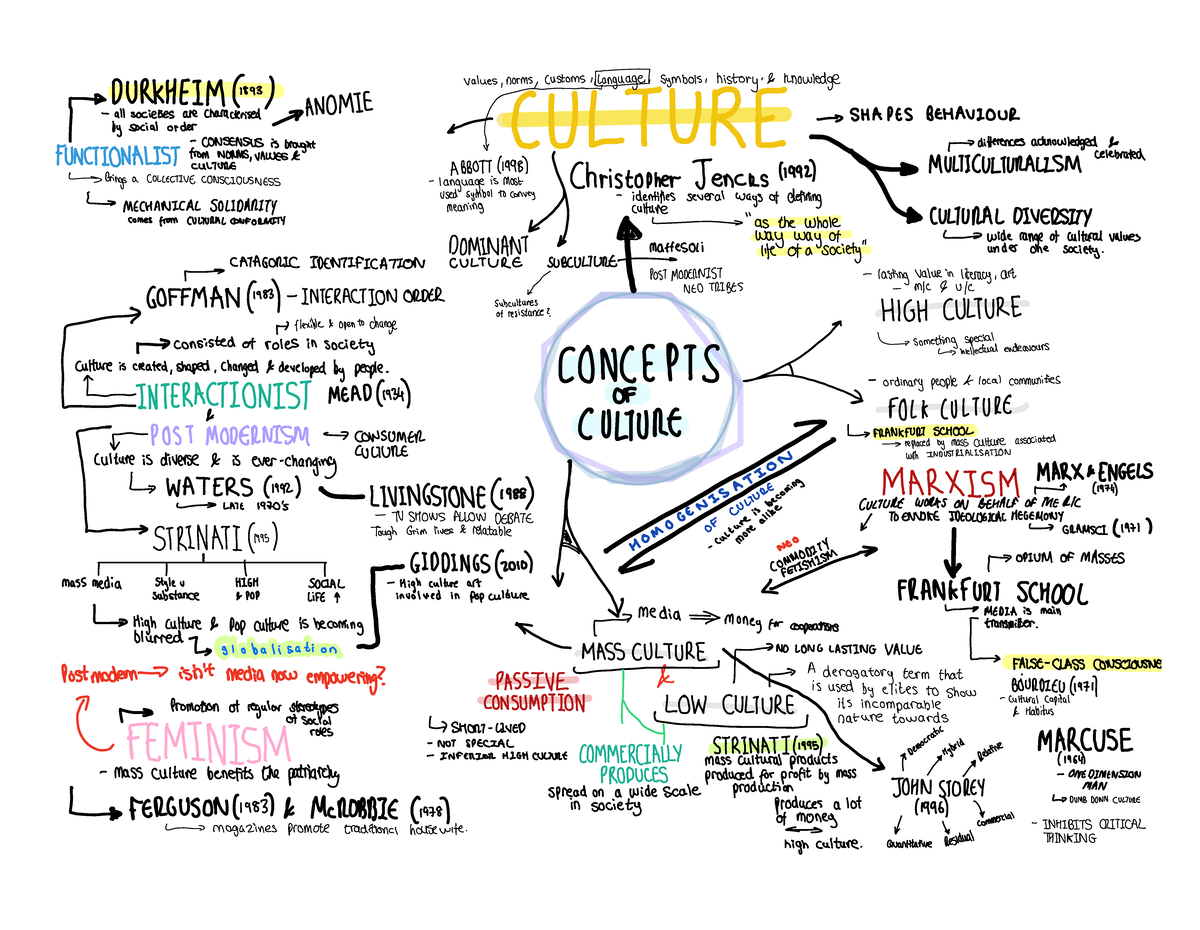 values, norms, customs, language, symbols, history & knowledge
CULTURE
SHAPES BEHAVIOUR
differences acknowledged &
celebrated
MULTICULTURALISM
CULTURAL DIVERSITY
wide range of cultural values
under one society.
ABBOTT (1998)
- language is most
used symbol to convey
meaning
Christopher Jencks (1992)
- identifies several ways of defining
culture
"as the whole
way way of
life of a society"
DOMINANT
CULTURE
SUBCULTURE
Maffesoli
POST MODERNIST
NEO TRIBES
Subcultures
of resistance?
DURKHEIM (1893)
- all societies are characterised
by social order
ANOMIE
FUNCTIONALIST
- CONSENSUS is brought
from NORMS, VALUES &
CULTURE
Brings a COLLECTIVE CONSCIOUSNESS
MECHANICAL SOLIDARITY
comes from CULTURAL CONFORMITY
CATAGORIC IDENTIFICATION
GOFFMAN (1983) - INTERACTION ORDER
flexible & open to change
consisted of roles in society
Culture is created, shaped, changed & developed by people.
INTERACTIONIST MEAD (1934)
&
POST MODERNISM
CONSUMER
CULTURE
Culture is diverse & is ever-changing
WATERS (1992)
LATE 1970's
LIVINGSTONE (1988)
- TV SHOWS ALLOW DEBATE
Tough Grim lives & relatable
STRINATI (1995)
mass media
Style v
Substance
HIGH
& POP
SOCIAL
LIFE ↑
GIDDINGS (2010)
- High culture art
involved in Pop culture
High culture & Pop culture is becoming
blurred
globalisation
Postmodern → isn't media now empowering?
Promotion of regular stereotypes
of social
roles
FEMINISM
- mass culture benefits the patriarchy
FERGUSON (1983) & McROBBIE (1978)
magazines promote traditional housewife.
CONCEPTS
OF
CULTURE
- lasting value in literacy, art
- m/c & u/c
HIGH CULTURE
Something special
intellectual endeavours
- ordinary people & local communities
FOLK CULTURE
FRANKFURT SCHOOL
replaced by mass culture associated
with INDUSTRIALISATION
HOMOGENISATION
OF CULTURE
- culture is becoming
more alike
MARXISM
MARX & ENGELS
(1974)
CULTURE WORKS ON BEHALF OF THE R/C
TO ENDORE IDEOLOGICAL HEGEMONY
GRAMSCI (1971)
NEO
COMMODITY
FETISHISM
OPIUM OF MASSES
FRANKFURT SCHOOL
MEDIA is main
transmitter.
FALSE-CLASS CONSCIOUSNE
BOURDIEU (1971)
- Cultural Capital
& Habitus
MARCUSE
(1964)
- ONE DIMENSION
MAN
DUMB DOWN CULTURE
- INHIBITS CRITICAL
THINKING
media ⇒ money for cooperations
MASS CULTURE
&
LOW CULTURE
NO LONG LASTING VALUE
A derogatory term that
is used by elites to show
its incomparable
nature towards
PASSIVE
CONSUMPTION
SHORT-LIVED
- NOT SPECIAL
- INFERIOR HIGH CULTURE
COMMERCIALLY
PRODUCES
spread on a wide scale
in society
STRINATI (1995)
mass cultural products
produced for profit by mass
production
Produces a lot
of money
high culture.
Democratic
Hybrid
Relative
JOHN STOREY
(1996)
Quantitative
Residual
Commercial